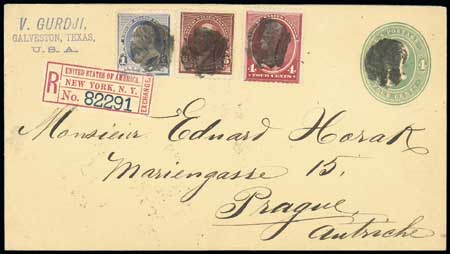 V. GURDJI,
GALVESTON, TEXAS,
U.S.A.
R
UNITED STATES OF AMERICA
NEW YORK, N.Y.
No. 82291
EXCHANGE
4
FOUR CENTS
4
4
U.S. POSTAGE
4
Monsieur Eduard Horak
Mariengasse 15.
Prague
Autriche